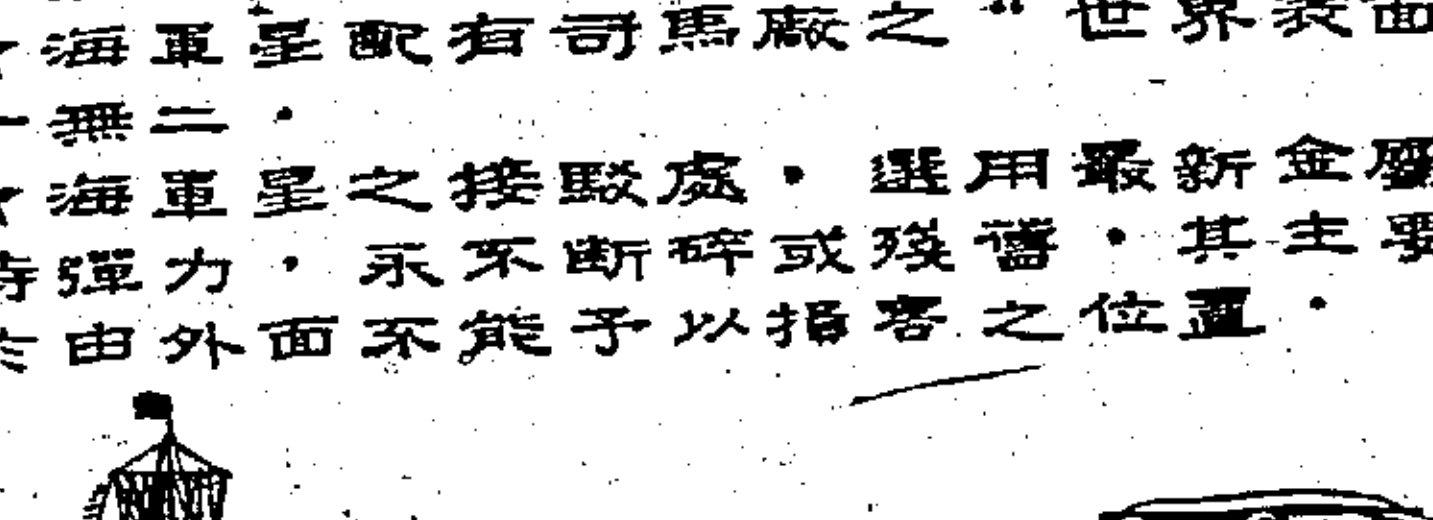 海軍星配有司馬廠之“世界表面
一無二．
海軍星之接駁處．選用最新金屬
彈力．永不斷碎或殘舊．其主要
由外面不能予以損害之位置．